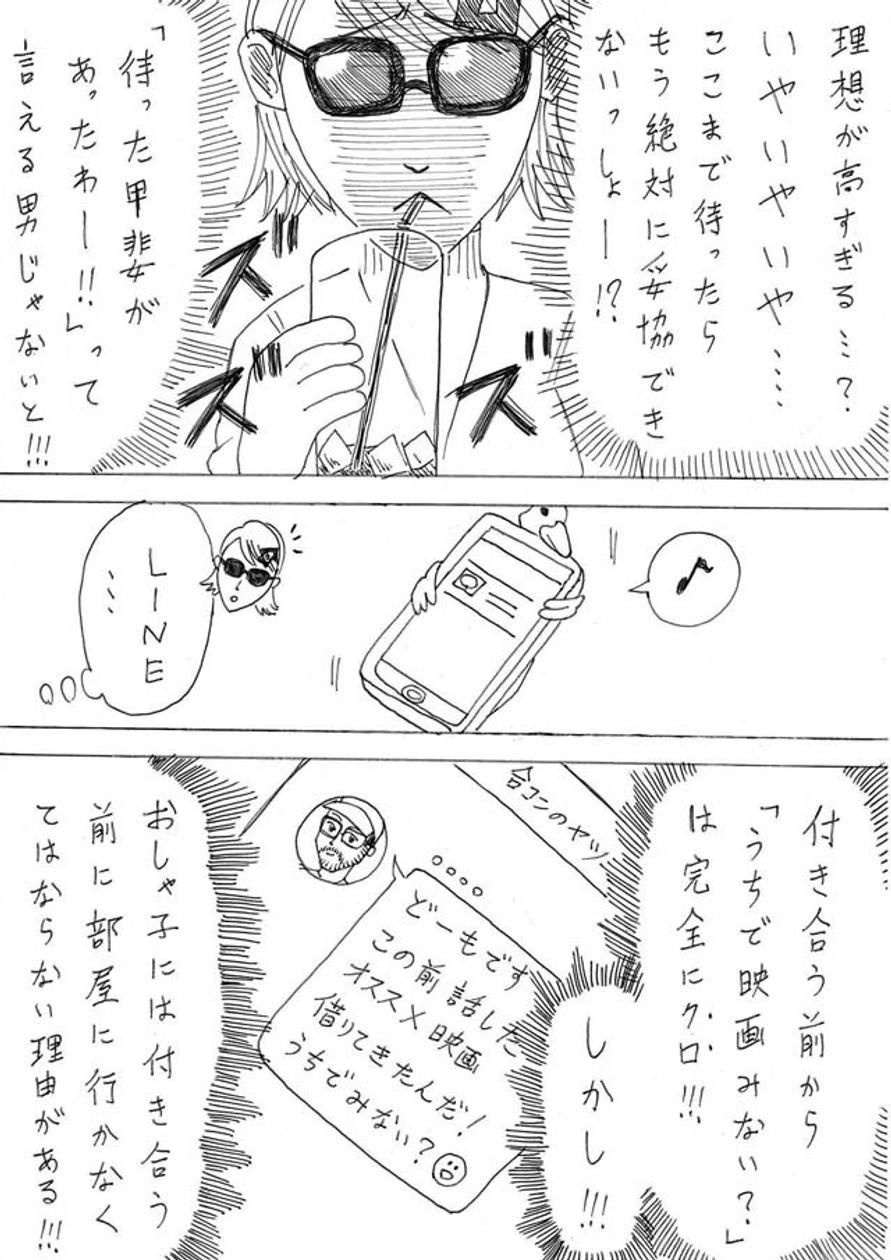 理想が高すぎる…?
いやいやいや……
ここまで待ったら
もう絶対に妥協でき
ないっしょー!?
「待った甲斐が
あったわー!!」って
言える男じゃないと!!!
ズ
ズ
ズ
♪
LINE
…
付き合う前から
「うちで映画みない?」
は完全にクロ!!!
しかし!!!
合コンのヤツ
どーもです
この前話した
オススメ映画
借りてきたんだ!
うちでみない?
おしゃ子には付き合う
前に部屋に行かなく
てはならない理由がある!!!